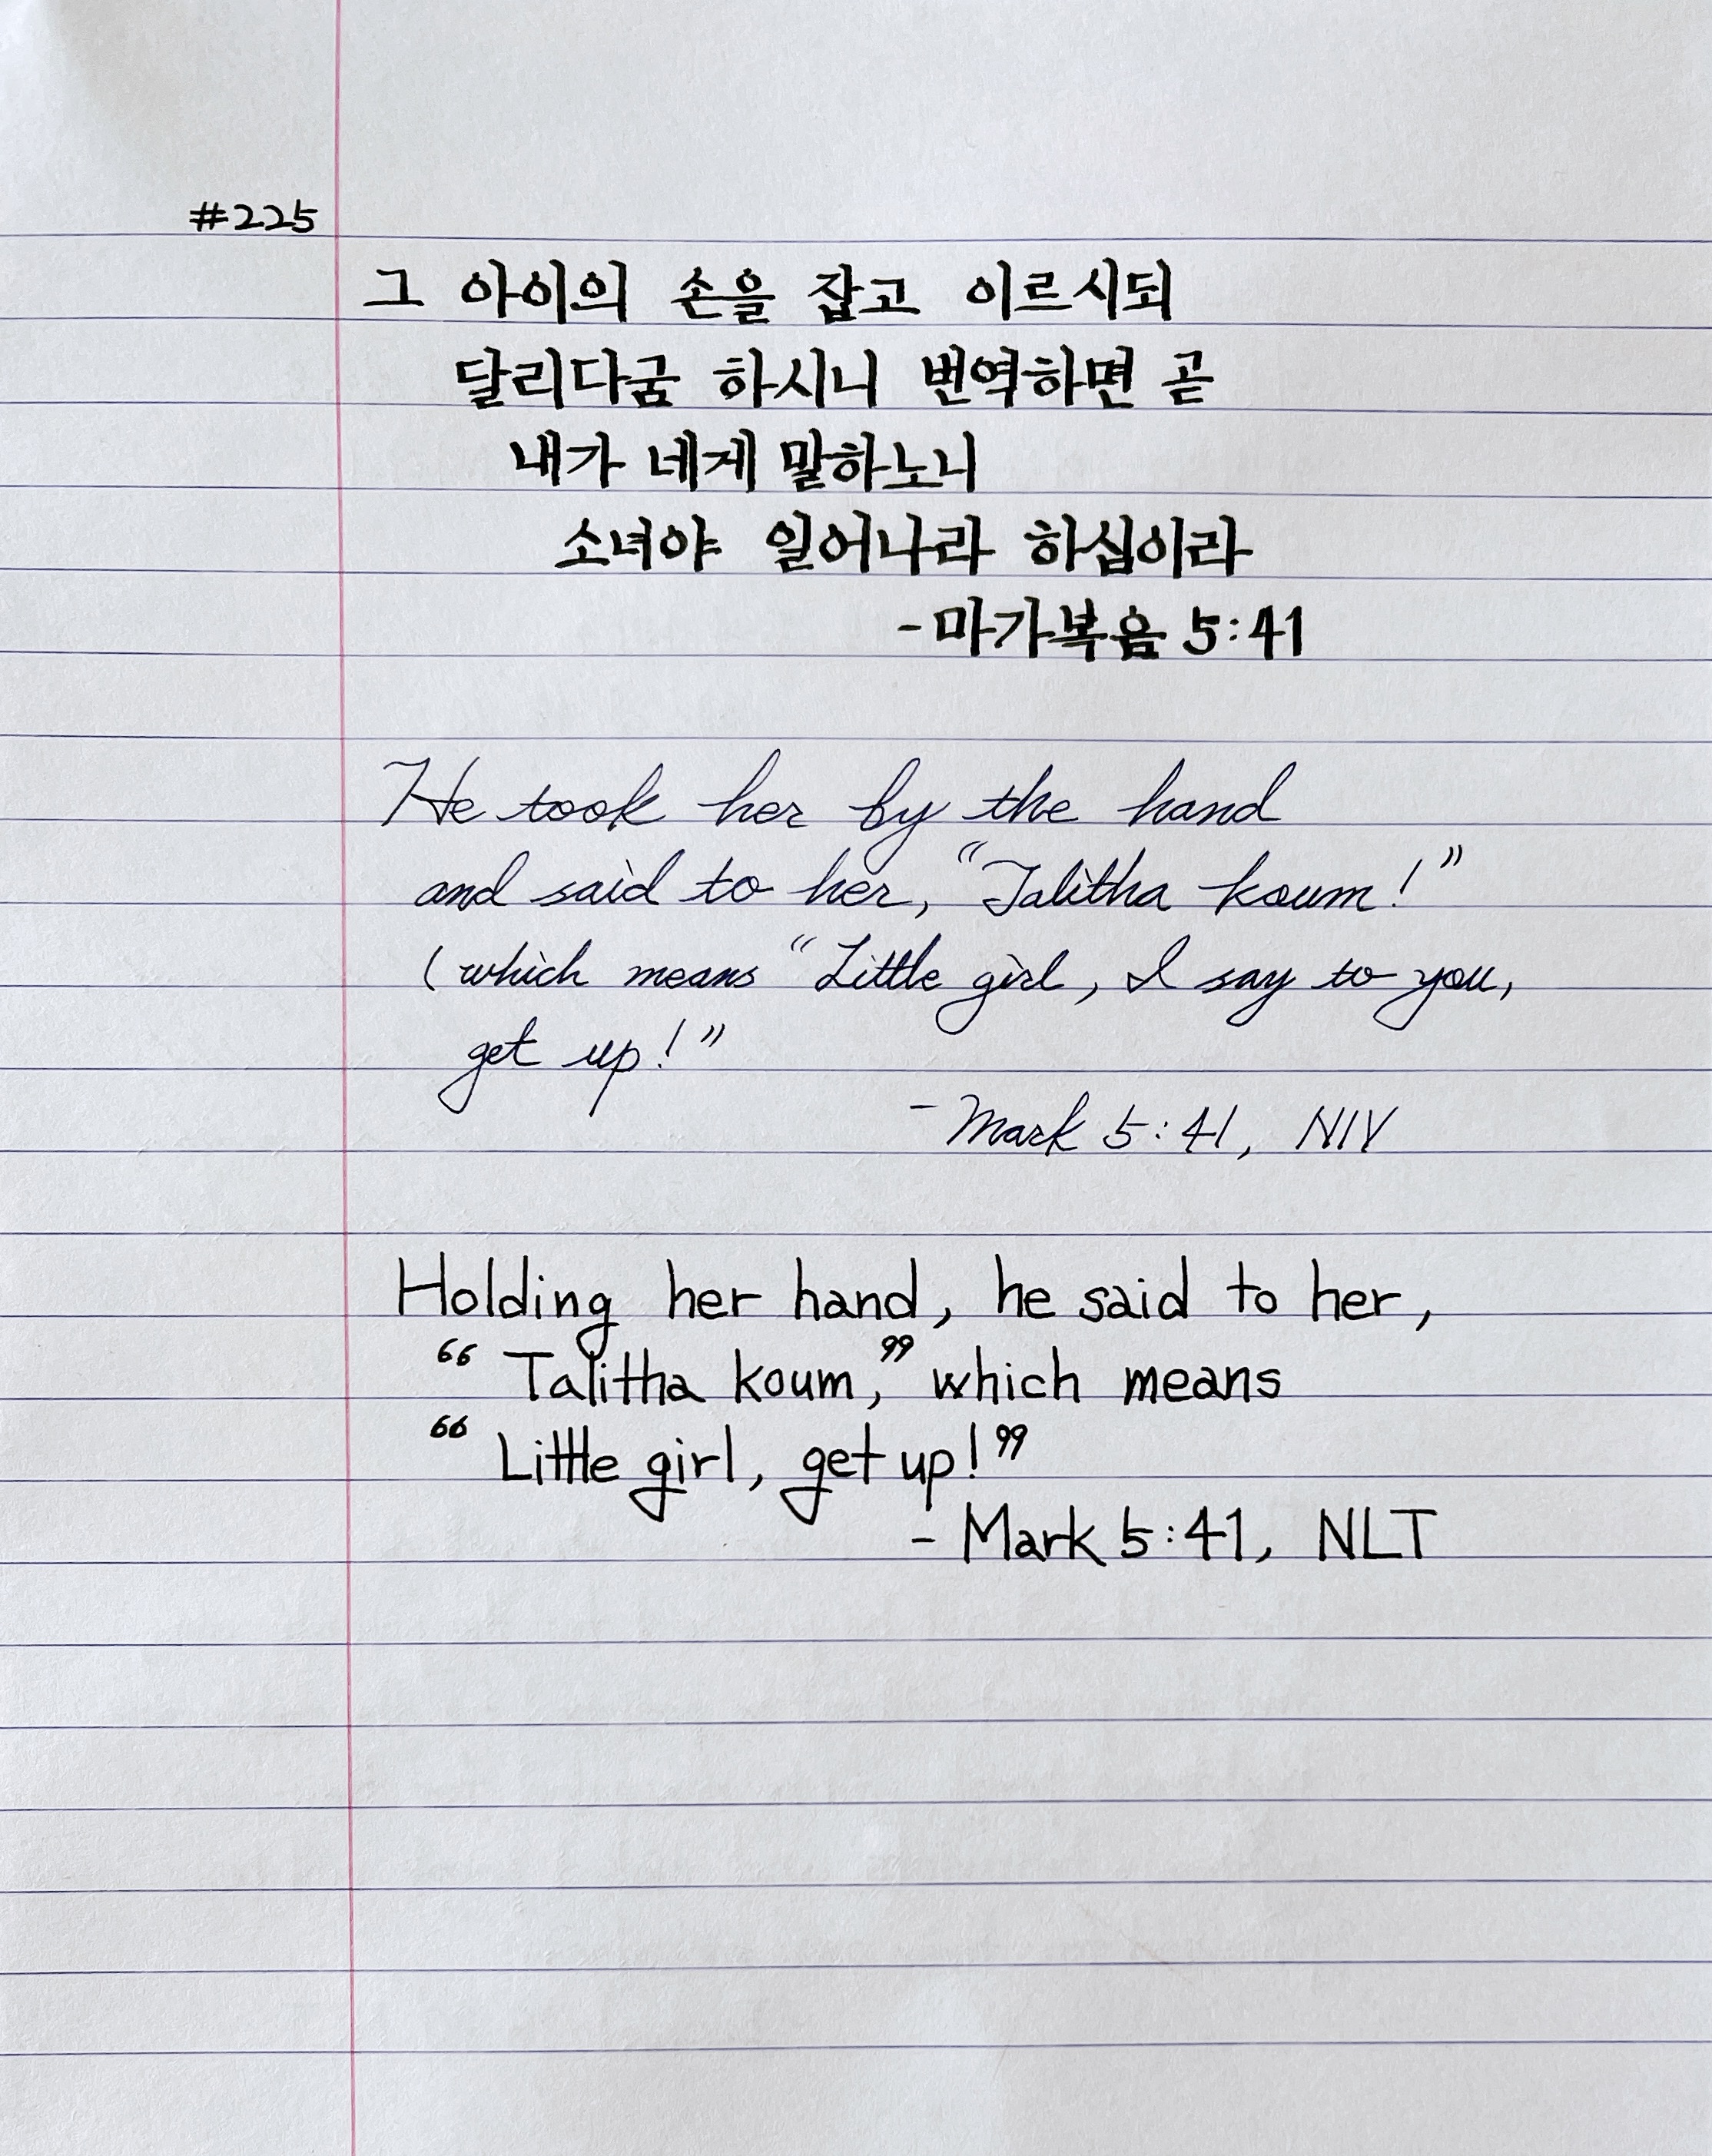 #225
그 아이의 손을 잡고 이르시되
달리다굼 하시니 번역하면 곧
내가 네게 말하노니
소녀야 일어나라 하심이라
-마가복음 5:41
He took her by the hand
and said to her, “Talitha koum!”
(which means “Little girl, I say to you,
get up!”
- Mark 5:41, NIV
Holding her hand, he said to her,
“Talitha koum,” which means
“Little girl, get up!”
- Mark 5:41, NLT